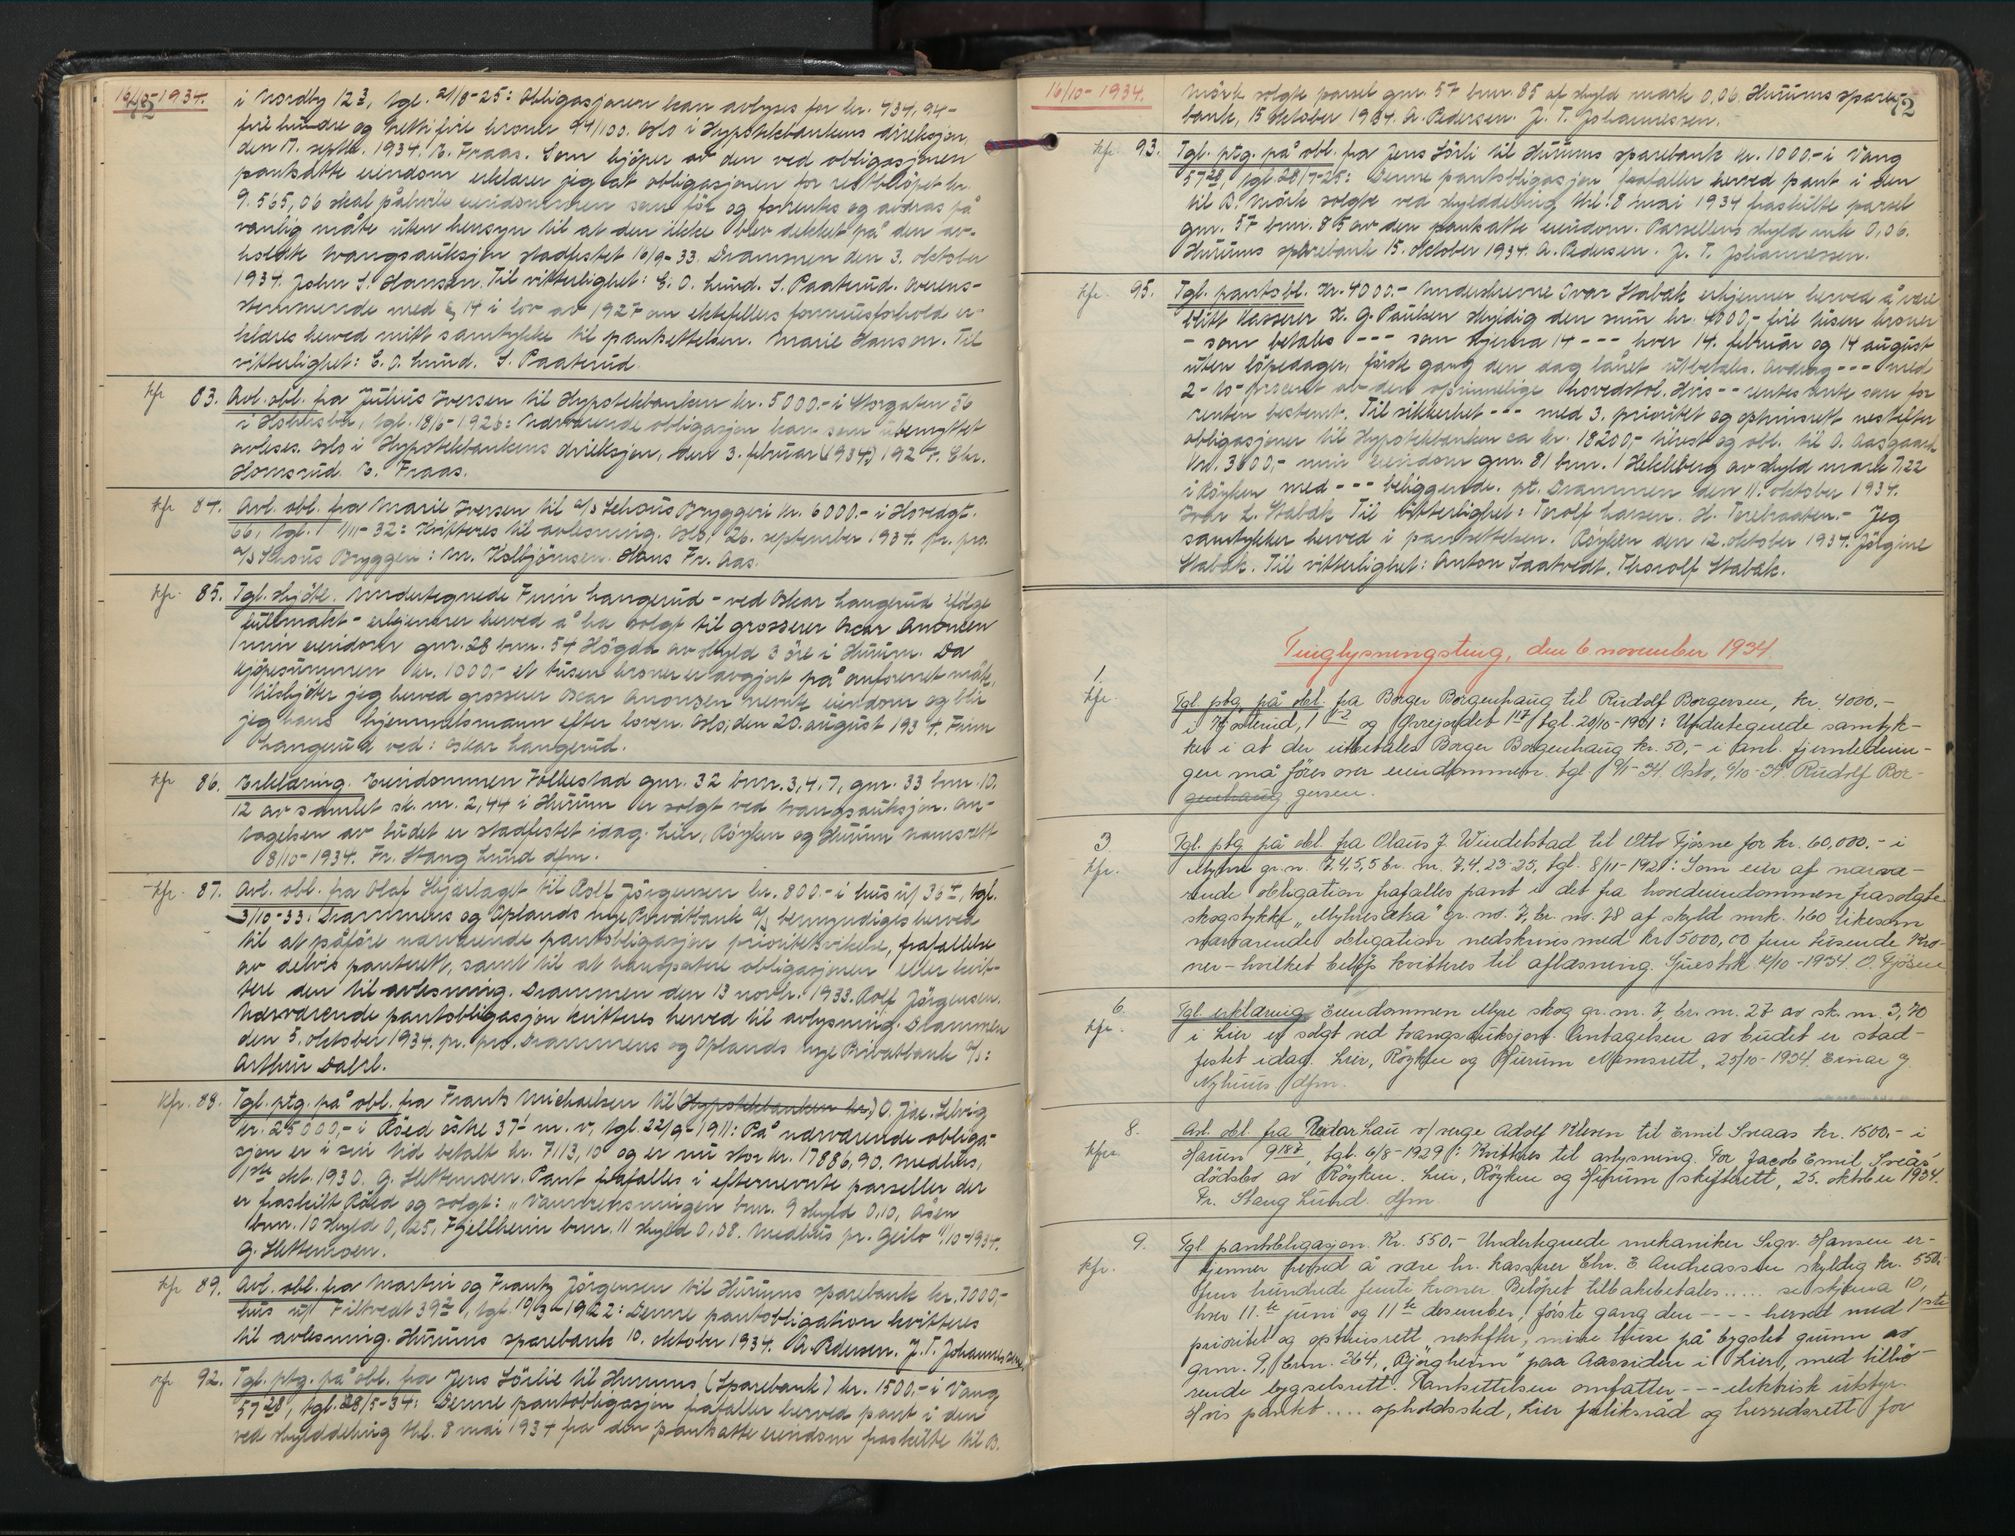 16/10-1934.
72
i Nordby 12³, tgl. 21/8-25: Obligasjonen kan avlyses for kr. 434,94-
fire hundre og tretti fire kroner 94/100. Oslo i Hypotekbankens direksjon,
den 17. septbr. 1934. E. Fraas. Som kjöper av den ved obligasjonen
pantsatte eiendom erklærer jeg at obligasjonen for restbelöpet kr.
9.565,06 skal påhvile eiendommen som för og forrentes og avdras på
vanlig måte uten hensyn til at den ikke blev dekket på den av-
holdte tvangsauksjon stadfestet 16/9-33. Drammen den 3. oktober
1934. John S. Hansen. Til vitterlighet: E. O. Lund. S. Paaterud. Overens-
stemmende med § 14 i lov av 1927 om ektefellers formuesforhold er-
klæres herved mitt samtykke til pantsettelsen. Marie Hansen. Til
vitterlighet: E. O. Lund. S. Paaterud.
kfr 83. Avl. obl. fra Julius Iversen til Hypotekbanken kr. 5000.- i Storgaten 56
i Holmsbu, tgl. 18/6-1926: Nærværende obligasjon kan som ubenyttet
avleses. Oslo i Hypotekbankens direksjon, den 3. februar (1934) 1927. Chr.
Homsrud. E. Fraas.
kfr 84. Avl. obl. fra Marie Iversen til A/S Schous Bryggeri kr. 6000.- i Hovedgt.
66, tgl. 1/11-32: Kvitteres til avlesning. Oslo. 26. september 1934. pr. pro.
A/S Schous Bryggeri: M. Kolbjörnsen. Hans Fr. Aas.
kfr. 85. Tgl. skjöte. Undertegnede Finn Langerud - ved Oskar Langerud ifölge
fullmakt - erkjenner herved å ha solgt til grosserer Oscar Anonsen
min eiendom gnr. 28 bnr. 54 Högda av skyld 3 öre i Hurum. Da
kjöpesummen kr. 1000.- et tusen kroner er avgjort på omforenet måte,
tilskjöter jeg herved grosserer Oscar Anonsen nevnte eiendom og blir
jeg hans hjemmelsmann efter loven. Oslo, den 20. august 1934. Finn
Langerud ved: Oskar Langerud.
kfr 86. Erklæring. Eiendommen Follestad gnr. 32 bnr. 3,4,7, gnr. 33 bnr. 10.
12 av samlet sk. m. 2,44 i Hurum er solgt ved tvangsauksjon. An-
tagelsen av budet er stadfestet idag. Lier, Röyken og Hurum namsrett
8/10-1934. Fr. Stang Lund dfm.
kfr. 87. Avl. obl. fra Olaf Skjærlaget til Rolf Jörgensen kr. 800.- i hus u/ 36, tgl.
3/10-33: Drammens og Oplands nye Privatbank A/S bemyndiges herved
til at påföre nærværende pantobligasjon prioritetsvikelse, frafallelse
av delvis panterett, samt til at transportere obligasjonen eller kvit-
tere den til avlesning. Drammen den 13 novbr. 1933. Rolf Jörgensen.
Nærværende pantobligasjon kvitteres herved til avlysning. Drammen
den 5. oktober 1934. pr. pro. Drammens og Oplands nye Privatbank A/S:
Arthur Dahl.
kfr. 88. Tgl. ptg. på obl. fra Frantz Michaelsen til (Hypotekbanken kr.) O. Jac. Selvig
kr. 25000,- i Röed östre 37¹ m. v, tgl. 22/9-1911: På nærværende obliga-
sjon er i sin tid betalt kr. 7113,10 og er nu stor kr. 17886,90. Medhus,
1ste okt. 1930. G. Slettemoen. Pant frafalles i efternevnte parseller der
er fraskilt Röed og solgt: „Vandrensningen bnr. 9 skyld 0,10, Åsen
bnr. 10 skyld 0,25, Fjellheim bnr. 11 skyld 0,08. Medhus pr. Geilo 1/10-1934.
G. Slettemoen.
kfr 89. Avl. obl. fra Martin og Frantz Jörgensen til Hurums sparebank kr. 7000,-
hus u/ Filtvedt 39², tgl. 19/3-1922: Denne pantobligation kvitteres
til avlesning. Hurums sparebank 10. oktober 1934. A. Pedersen. J. T. Johannessen.
kfr 92. Tgl. ptg. på obl. fra Jens Sörlie til Hurums (Sparebank) kr. 1500.- i Vang
57²⁸, tgl. 28/5-34: Denne pantobligasjon frafaller herved pant i den
ved skylddeling tbl. 8 mai 1934 fra den pantsatte eiendom fraskilte til B.
16/10-1934.
72
Mörk solgte parsel gnr. 57 bnr. 85 af skyld mark 0,06. Hurums spare-
bank, 15 Oktober 1934. A. Pedersen. J. T. Johannessen.
kfr. 93. Tgl. ptg. på obl. fra Jens Sörli til Hurums sparebank kr. 1000.- i Vang
57²⁸, tgl. 28/7-25: Denne pantobligasjon frafaller herved pant i den
til B. Mörk solgte ved skylddeling tbl. 8 mai 1934 fraskilte parsel
gnr. 57 bnr. 85 av den pantsatte eiendom. Parsellens skyld mk 0,06.
Hurums sparebank 15. oktober 1934. A. Pedersen. J. T. Johannessen.
kfr. 95. Tgl. pantobl. Kr. 4000.- Underskrevne Ivar Stabæk erkjenner herved å være
blitt kasserer H. G. Paulsen skyldig den sum kr. 4000,- fire tusen kroner
- som betales --- som skjema 14 --- hver 14. februar og 14 august
uten löpedager, förste gang den dag lånet utbetales. Avdrag --- med
2- to- procent av den oprinnelige hovedstol. Hvis -- rentes rente som for
renten bestemt. Til sikkerhet --- med 3. prioritet og optrinsrett nestefter
obligasjoner til Hypotekbanken ca kr. 18200,- tilrest og obl. til O. Aasgaard
kr. 3000,- min eiendom gnr. 81 bnr. 1 Hekleberg av skyld mark 7,22
i Röyken med --- beliggende. pt. Drammen den 11. oktober 1934.
Ivar L. Stabæk Til vitterlighet: Torolf Larsen. H. Torebraaten.- Jeg
samtykker herved i pantsettelsen. Röyken den 12. oktober 1934. Jörgine
Stabæk. Til vitterlighet: Anton Saatvedt. Thorolf Stabæk.
Tinglysningsting, den 6 november 1934.
1.
kfr. Tgl. ptg på obl. fra Borger Borgenhaug til Rudolf Borgersen, kr. 4000,-
i Kjösterud, 1 og Övrejordet 1, tgl. 20/10-1931: Undertegnede samtyk-
ker i at der utbetales Borger Borgenhaug kr. 50,- i anl. fjernlednin-
gen må föres over eiendommen. tgl 6/11-34. Oslo, 6/10-34 Rudolf Bor-
genhaug gersen.
3.
kfr. Tgl. ptg på obl. fra Olaus J. Windelstad til Otto Fjösne for kr. 60,000.- i
Myhre gr. n. 7.4.5,5 br. nr. 7,4,23-25, tgl. 8/11-1921: Som eier af nærvæ-
rende obligation frafalles pant i det fra hovedeiendommen frasolgte
skogstykke „Myhresætra" gr. no. 7, br. no. 78 af skyld mrk. 1,60 likesom
nærværende obligation nedskrives med kr 5000,00 fem tusende kro-
ner - hvilket belöp kvitteres til aflæsning. 4/10-1934. O. Fjösne
6.
kfr. Tgl. erklæring. Eiendommen Myre skog gr. nr. 7, br. nr. 27 av sk. m. 3,70
i Lier er solgt ved tvangsauksjon. Antagelsen av budet er stad-
festet idag. Lier, Röyken og Hurum Namsrett, 25/10-1934. Einar J.
Nyhuus dfm.
8.
kfr. Avl. obl. fra Reidar Lau v/ verge Adolf Klesen til Emil Sveaas kr. 1500.- i
Haren 9¹⁸³, tgl. 6/8-1929: Kvitteres til avlysning. For Jacob Emil Sveås'
dödsbo av Röyken. Lier, Röyken og Hurum skifterett, 25. oktober 1934.
Fr. Stang Lund. dfm.
9.
kfr. Tgl. pantobligasjon. Kr. 550.- Undertegnede mekaniker Sigv. Hansen er-
kjenner herved å være hr. kasserer Chr. E Andreassen skyldig kr. 550.-
fem hundrede femti kroner. Belöpet tilbakebetales ..... se skjema 10,
hver 11.te juni og 11te desember, förste gang den ---- herved med 1ste
prioritet og optrinsrett nestefter, mine huse på bygslet grunn av
grnr. 9, brnr. 264, „Björgheim" paa Aassiden i Lier, med tilhö-
rende bygselsrett. Pantsettelsen omfatter --- elektrisk utstyr.
Hvis pantet .... opholdssted, Lier forliksråd og herredsrett for